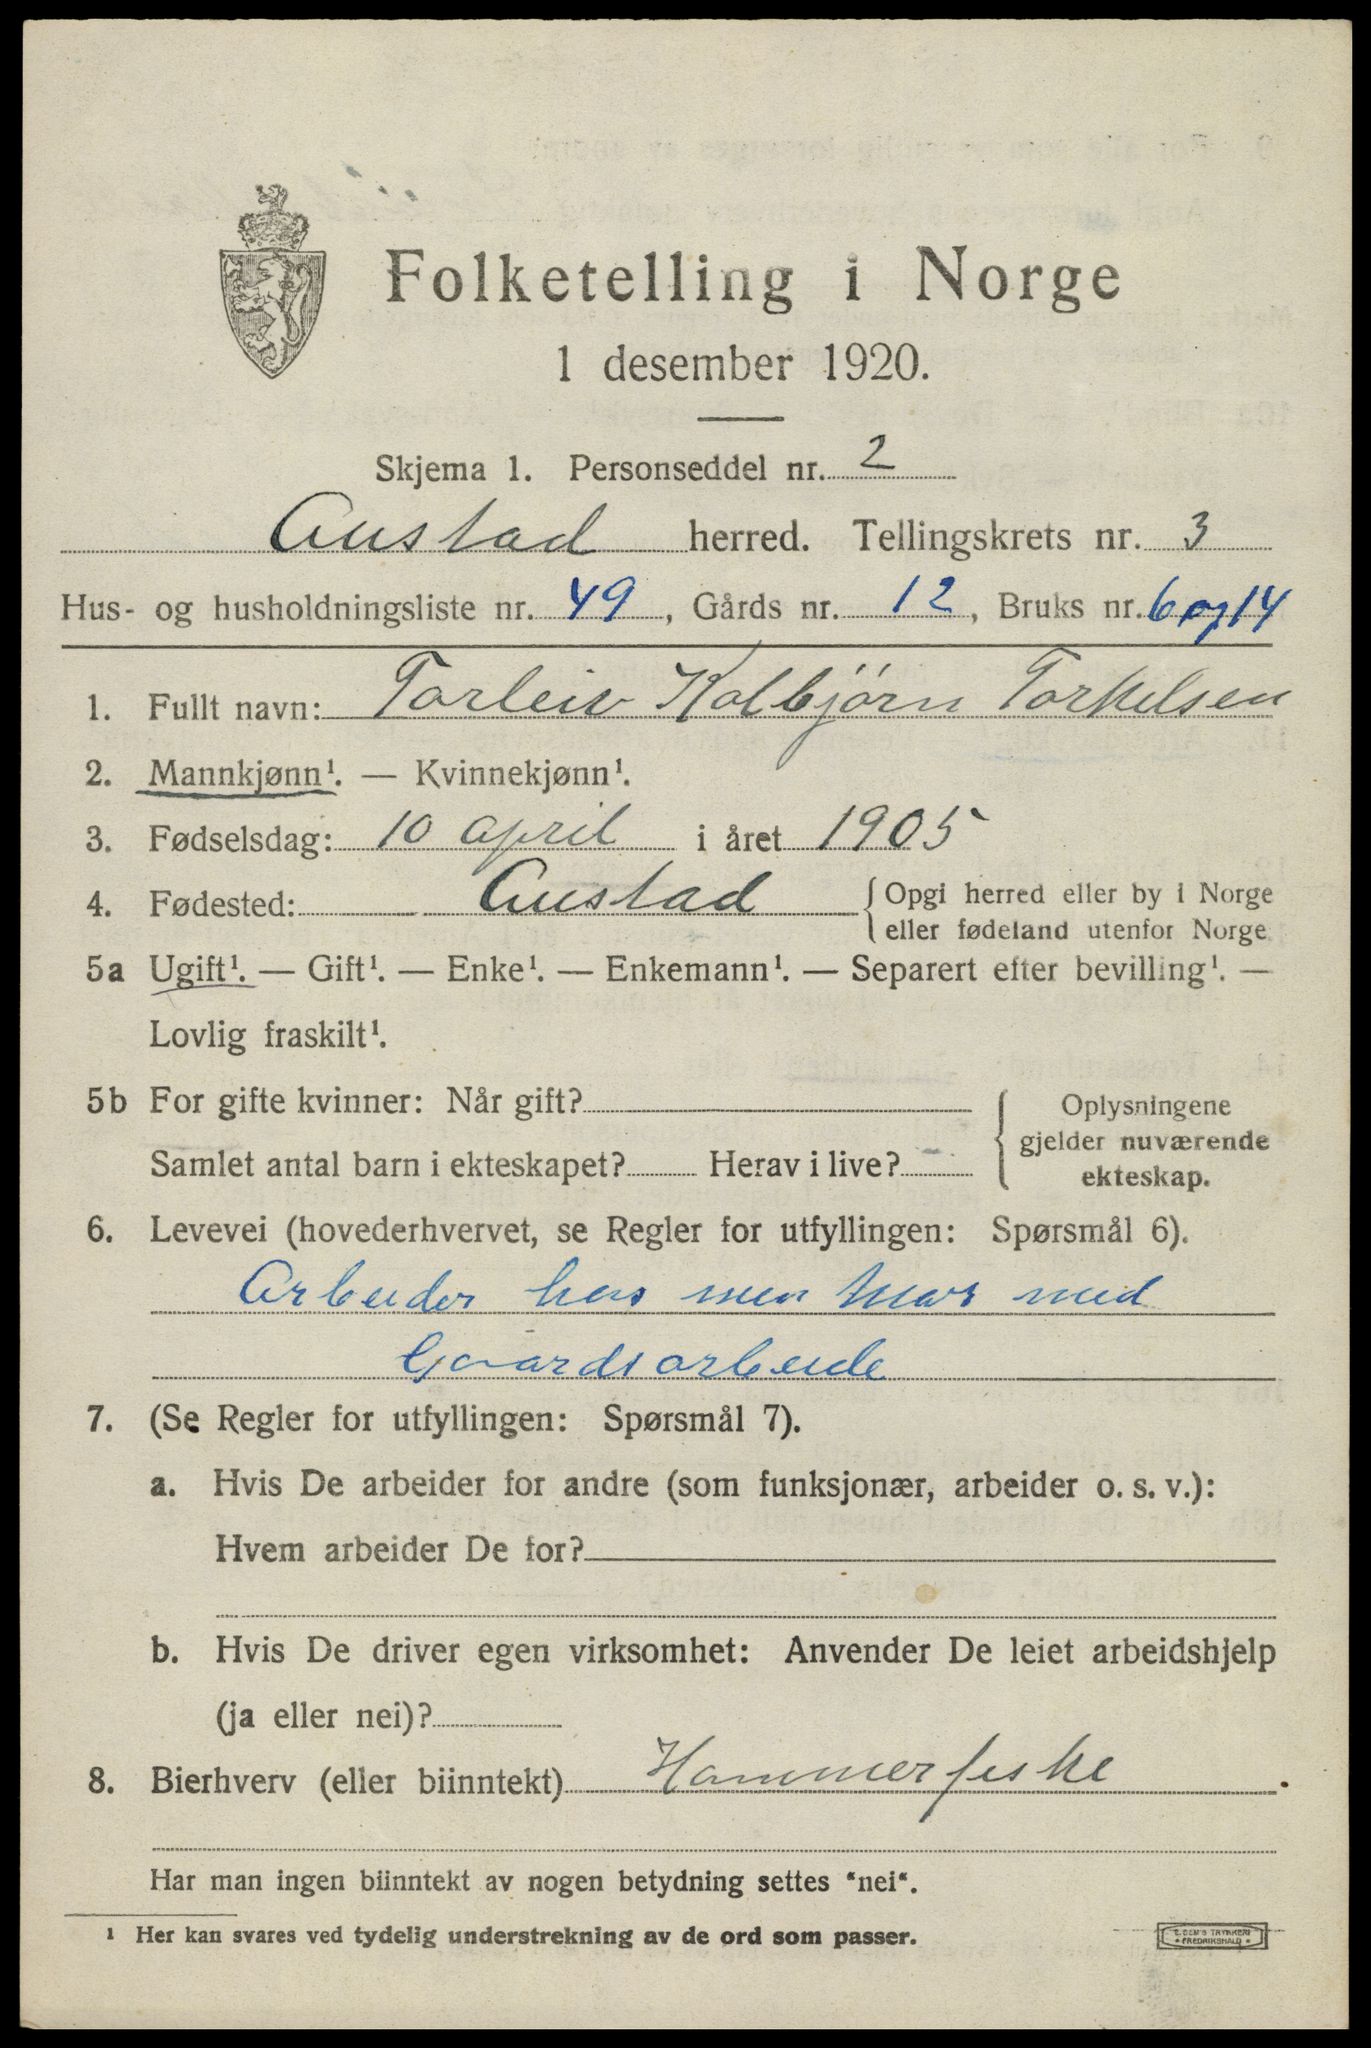 Folketelling i Norge
1 desember 1920.
Skjema 1. Personseddel nr. 2
Austad herred. Tellingskrets nr. 3
Hus- og husholdningsliste nr. 49, Gårds nr. 12, Bruks nr. 6 og 14
1. Fullt navn: Torleiv Kolbjørn Torkelsen
2. Mannkjønn¹. — Kvinnekjønn¹.
3. Fødselsdag: 10 april i året 1905
4. Fødested: Austad { Opgi herred eller by i Norge
eller fødeland utenfor Norge
5a Ugift¹. — Gift¹. — Enke¹. — Enkemann¹. — Separert efter bevilling¹. —
Lovlig fraskilt¹.
5b For gifte kvinner: Når gift? { Oplysningene
gjelder nuværende
Samlet antal barn i ekteskapet? Herav i live? ekteskap.
6. Levevei (hovederhvervet, se Regler for utfyllingen: Spørsmål 6).
Arbeider hos men Mor med
Gaardsarbeide
7. (Se Regler for utfyllingen: Spørsmål 7).
a. Hvis De arbeider for andre (som funksjonær, arbeider o. s. v.):
Hvem arbeider De for?
b. Hvis De driver egen virksomhet: Anvender De leiet arbeidshjelp
(ja eller nei)?
8. Bierhverv (eller biinntekt) Hommerfiske.
Har man ingen biinntekt av nogen betydning settes "nei".
¹ Her kan svares ved tydelig understrekning av de ord som passer.